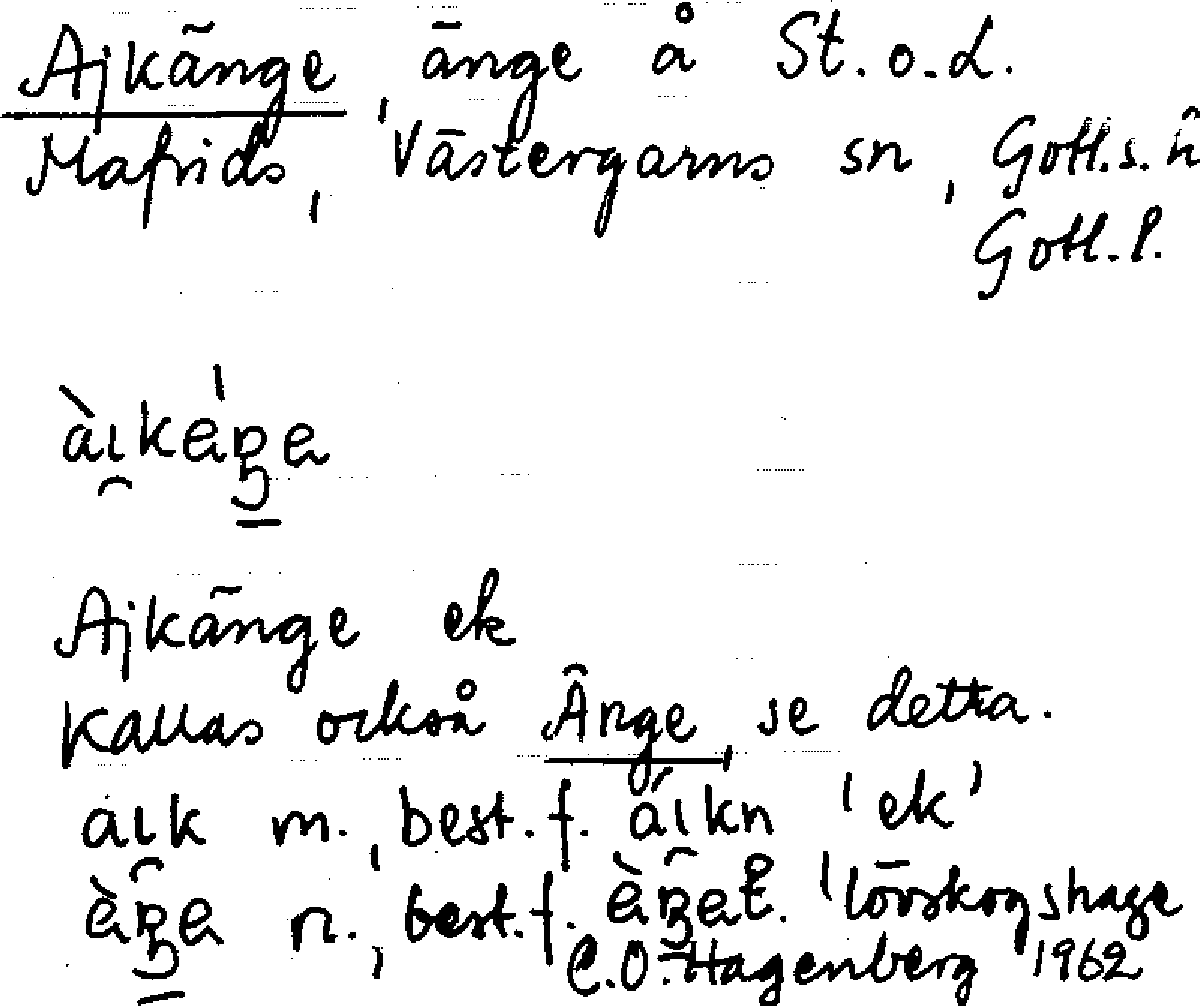 Ajkänge, änge å St. o. L.
Mafrids, Västergarns sn, Gotl.s. h
Gotl. l.
àike̍ŋe
Ajkänge ek
Kallas också Änge, se detta.
aik m., best. f. áikn 'ek'
èŋe n., best. f. èŋet. 'lövskogshage
C.O. Hagenberg 1962